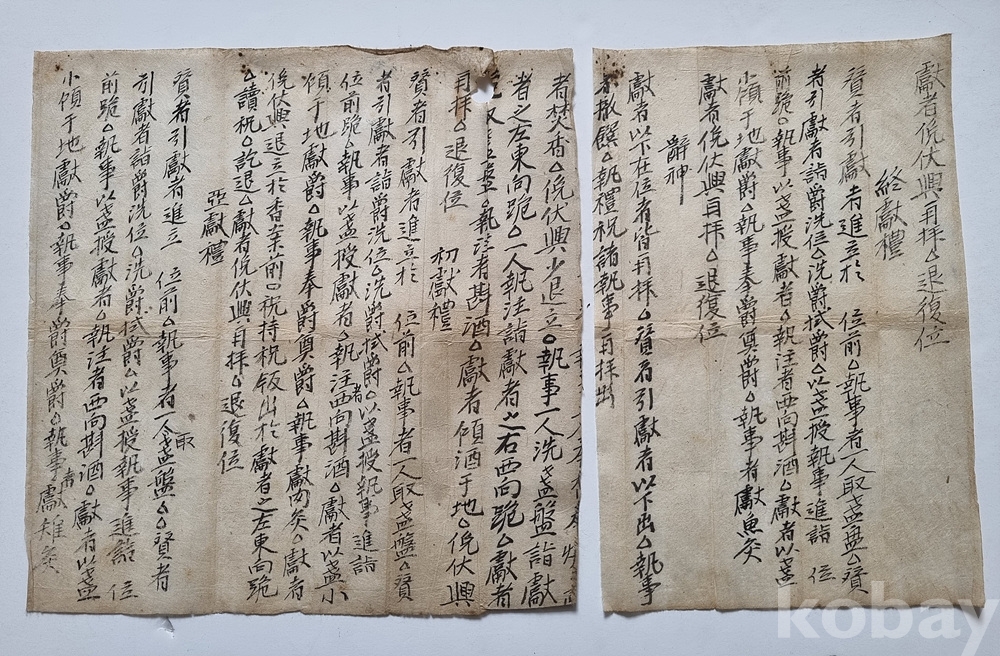 者焚香△俛伏興少退立△執事一人洗盞盤詣獻
者之左東向跪△一人執注詣獻者之右西向跪△獻者
盞△執注者斟酒△獻者傾酒于地△俛伏興
再拜△退復位
初獻禮
賛者引獻者進立於 位前△執事者一人取盞盤△賛
者引獻者詣爵洗位△洗爵拭爵△以盞授執事進詣
位前跪△執事以盞授獻者△執注者西向斟酒△獻者以盞小
傾于地獻爵△執事奉爵奠爵△執事獻肉灸△獻者
俛伏興退立於香案前○祝持祝板出於獻者之左東向跪
△讀祝△訖退△獻者俛伏興再拜△退復位
亞獻禮
賛者引獻者進立 位前△執事者一人取盞盤△賛者
引獻者詣爵洗位△洗爵拭爵△以盞授執事進詣 位
前跪△執事以盞授獻者△執注者西向斟酒△獻者以盞
小傾于地獻爵△執事奉爵奠爵△執事者獻雉灸
獻者俛伏興再拜△退復位
終獻禮
賛者引獻者進立於 位前△執事者一人取盞盤△賛
者引獻者詣爵洗位△洗爵拭爵△以盞授執事進詣 位
前跪△執事以盞授獻者△執注者西向斟酒△獻者以盞
小傾于地獻爵△執事奉爵奠爵△執事者獻魚灸
獻者俛伏興再拜△退復位
辭神
獻者以下在位者皆再拜△賛者引獻者以下出△執事
徹饌△執禮祝諸執事再拜出
kobay